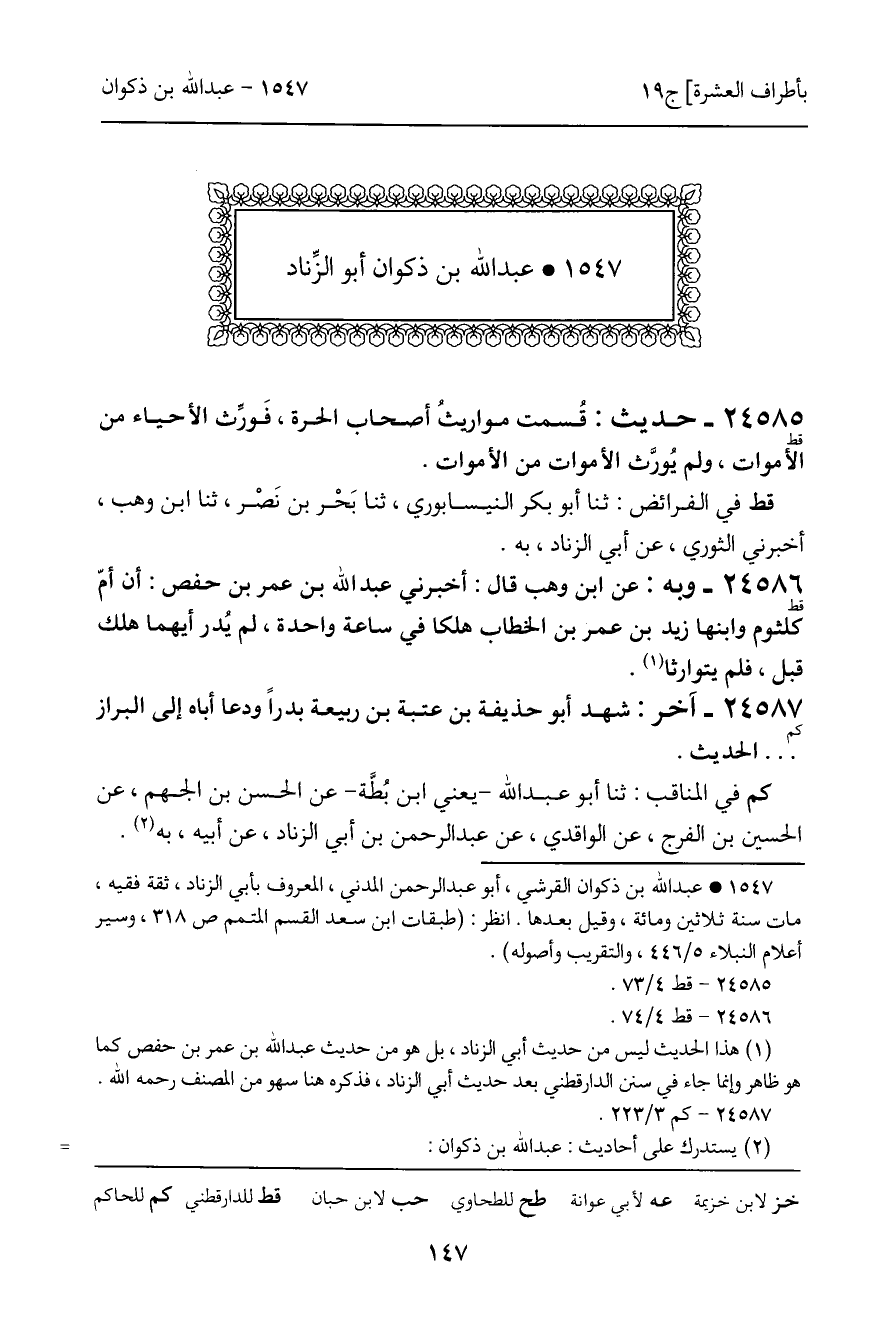 بأطراف العشرة] ج١٩
١٥٤٧ - عبدالله بن ذكوان
١٥٤٧ • عبدالله بن ذكوان أبو الزِّناد
٢٤٥٨٥ ـ حـديث : قُسمت مواريثُ أصحاب الحرة ، فَورِّث الأحياء من
قط
الأموات ، ولم يُورَّث الأموات من الأموات .
قط في الفرائض : ثنا أبو بكر النيسابوري ، ثنا بَحْر بن نَصْر ، ثنا ابن وهب ،
أخبرني الثوري ، عن أبي الزناد ، به .
٢٤٥٨٦ ـ وبه : عن ابن وهب قال : أخبرني عبدالله بن عمر بن حفص : أن أمّ
قط
كلثوم وابنها زيد بن عمر بن الخطاب هلكا في ساعة واحدة ، لم يُدر أيهما هلك
قبل ، فلم يتوارثا(١) .
٢٤٥٨٧ ـ آخر : شهد أبو حذيفة بن عتبة بن ربيعة بدراً ودعا أباه إلى البراز
كم
... الحديث .
كم في المناقب : ثنا أبو عبدالله -يعني ابن بُطَّة- عن الحسن بن الجهم ، عن
الحسين بن الفرج ، عن الواقدي ، عن عبدالرحمن بن أبي الزناد ، عن أبيه ، به(٢) .
١٥٤٧ • عبدالله بن ذكوان القرشي ، أبو عبدالرحمن المدني ، المعروف بأبي الزناد ، ثقة فقيه ،
مات سنة ثلاثين ومائة ، وقيل بعدها . انظر : (طبقات ابن سعد القسم المتمم ص ٣١٨ ، وسير
أعلام النبلاء ٤٤٦/٥ ، والتقريب وأصوله) .
٢٤٥٨٥ - قط ٧٣/٤ .
٢٤٥٨٦ - قط ٧٤/٤ .
(١) هذا الحديث ليس من حديث أبي الزناد ، بل هو من حديث عبدالله بن عمر بن حفص كما
هو ظاهر وإنما جاء في سنن الدارقطني بعد حديث أبي الزناد ، فذكره هنا سهو من المصنف رحمه الله .
٢٤٥٨٧ - كم ٢٢٣/٣ .
(٢) يستدرك على أحاديث : عبدالله بن ذكوان : =
خز لابن خزيمة عه لأبي عوانة طح للطحاوي حب لابن حبان قط للدارقطني كم للحاكم
١٤٧